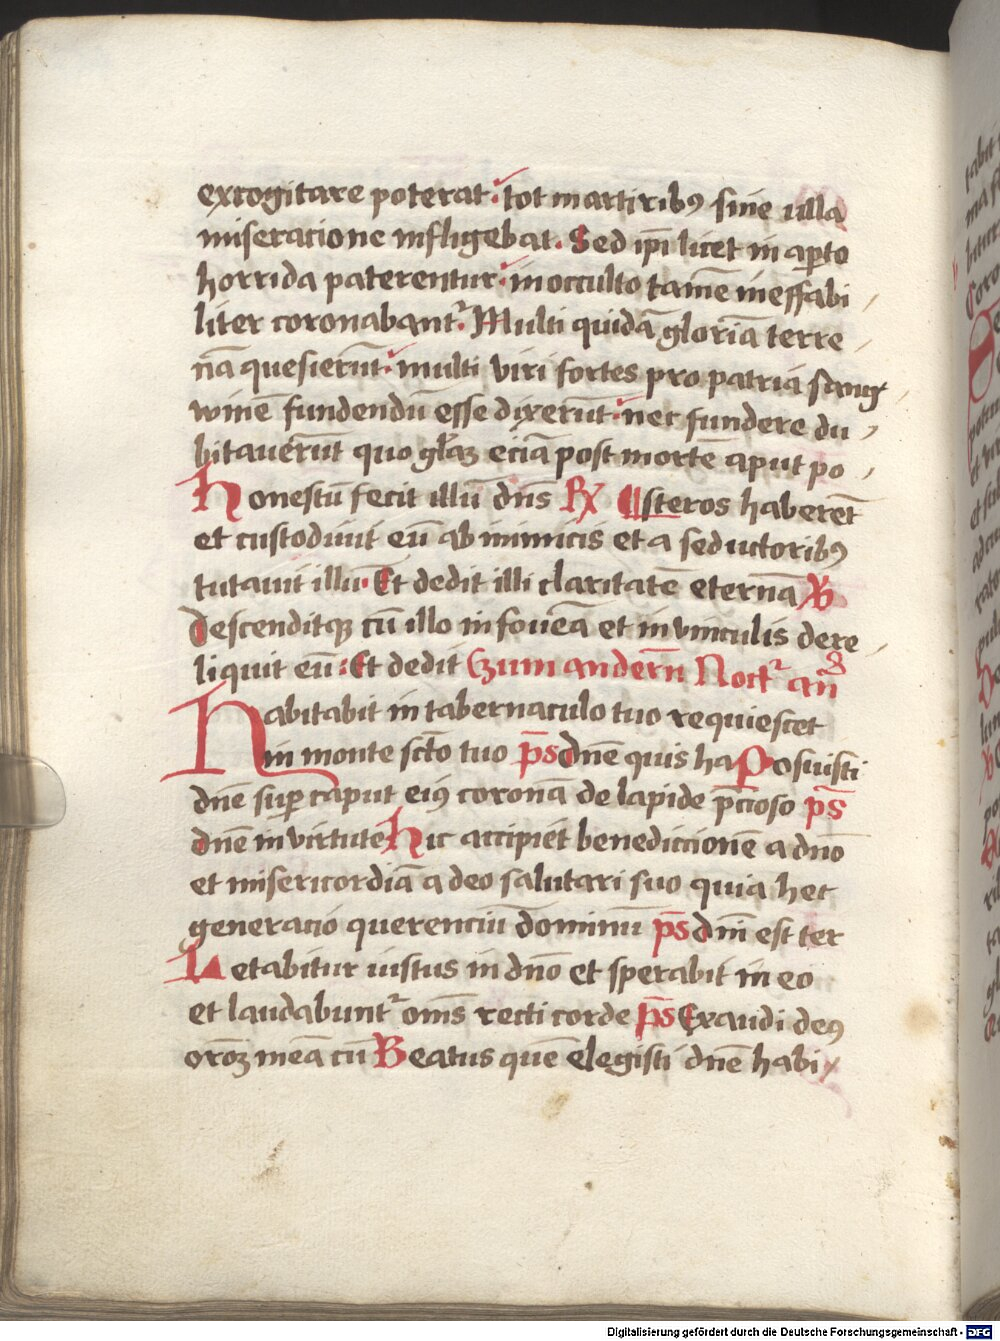 excogitare poterat. tot martiribꝰ sine ulla
miseracione infligebat. Sed ip̄i licet in aperto
horrida paterentur. in occulto tamē ineffabi
liter coronabant᷑. Multi quidā gloriā terre
nā quesierūt. multi viri fortes pro patria sang
winē fundendū esse dixerūt. nec fundere du
bitauerūt quo gl̄az eciā post mortē aput po
Honestū fecit illū dn̄s ℟ steros haberēt
et custodiuit eū ab inimicis et a seductoribꝰ
tutauit illū. Et dedit illi claritatē eternā ℣
descenditqꝫ cū illo in foueā et in vinculis dere
liquit eū: Et dedit Czum andern̄ Noct᷑ an̄
Habitabit in tabernaculo tuo requiescet
in monte sc̄to tuo p̄s dn̄e quis ha Posuisti
dn̄e suꝑ caput eiꝰ coronā de lapide p̄cioso p̄s
dn̄e in virtute Hic accipiet benediccionē a dn̄o
et misericordiā a deo salutari suo quia hec
generacio querenciū dominū p̄s dn̄i est ter
Letabitur iustus in dn̄o et sperabit in eo
et laudabunt᷑ om̄s recti corde p̄s Exaudi deꝰ
oroꝫ meā cū Beatus quē elegisti dn̄e habi
Digitalisierung gefördert durch die Deutsche Forschungsgemeinschaft - DFG